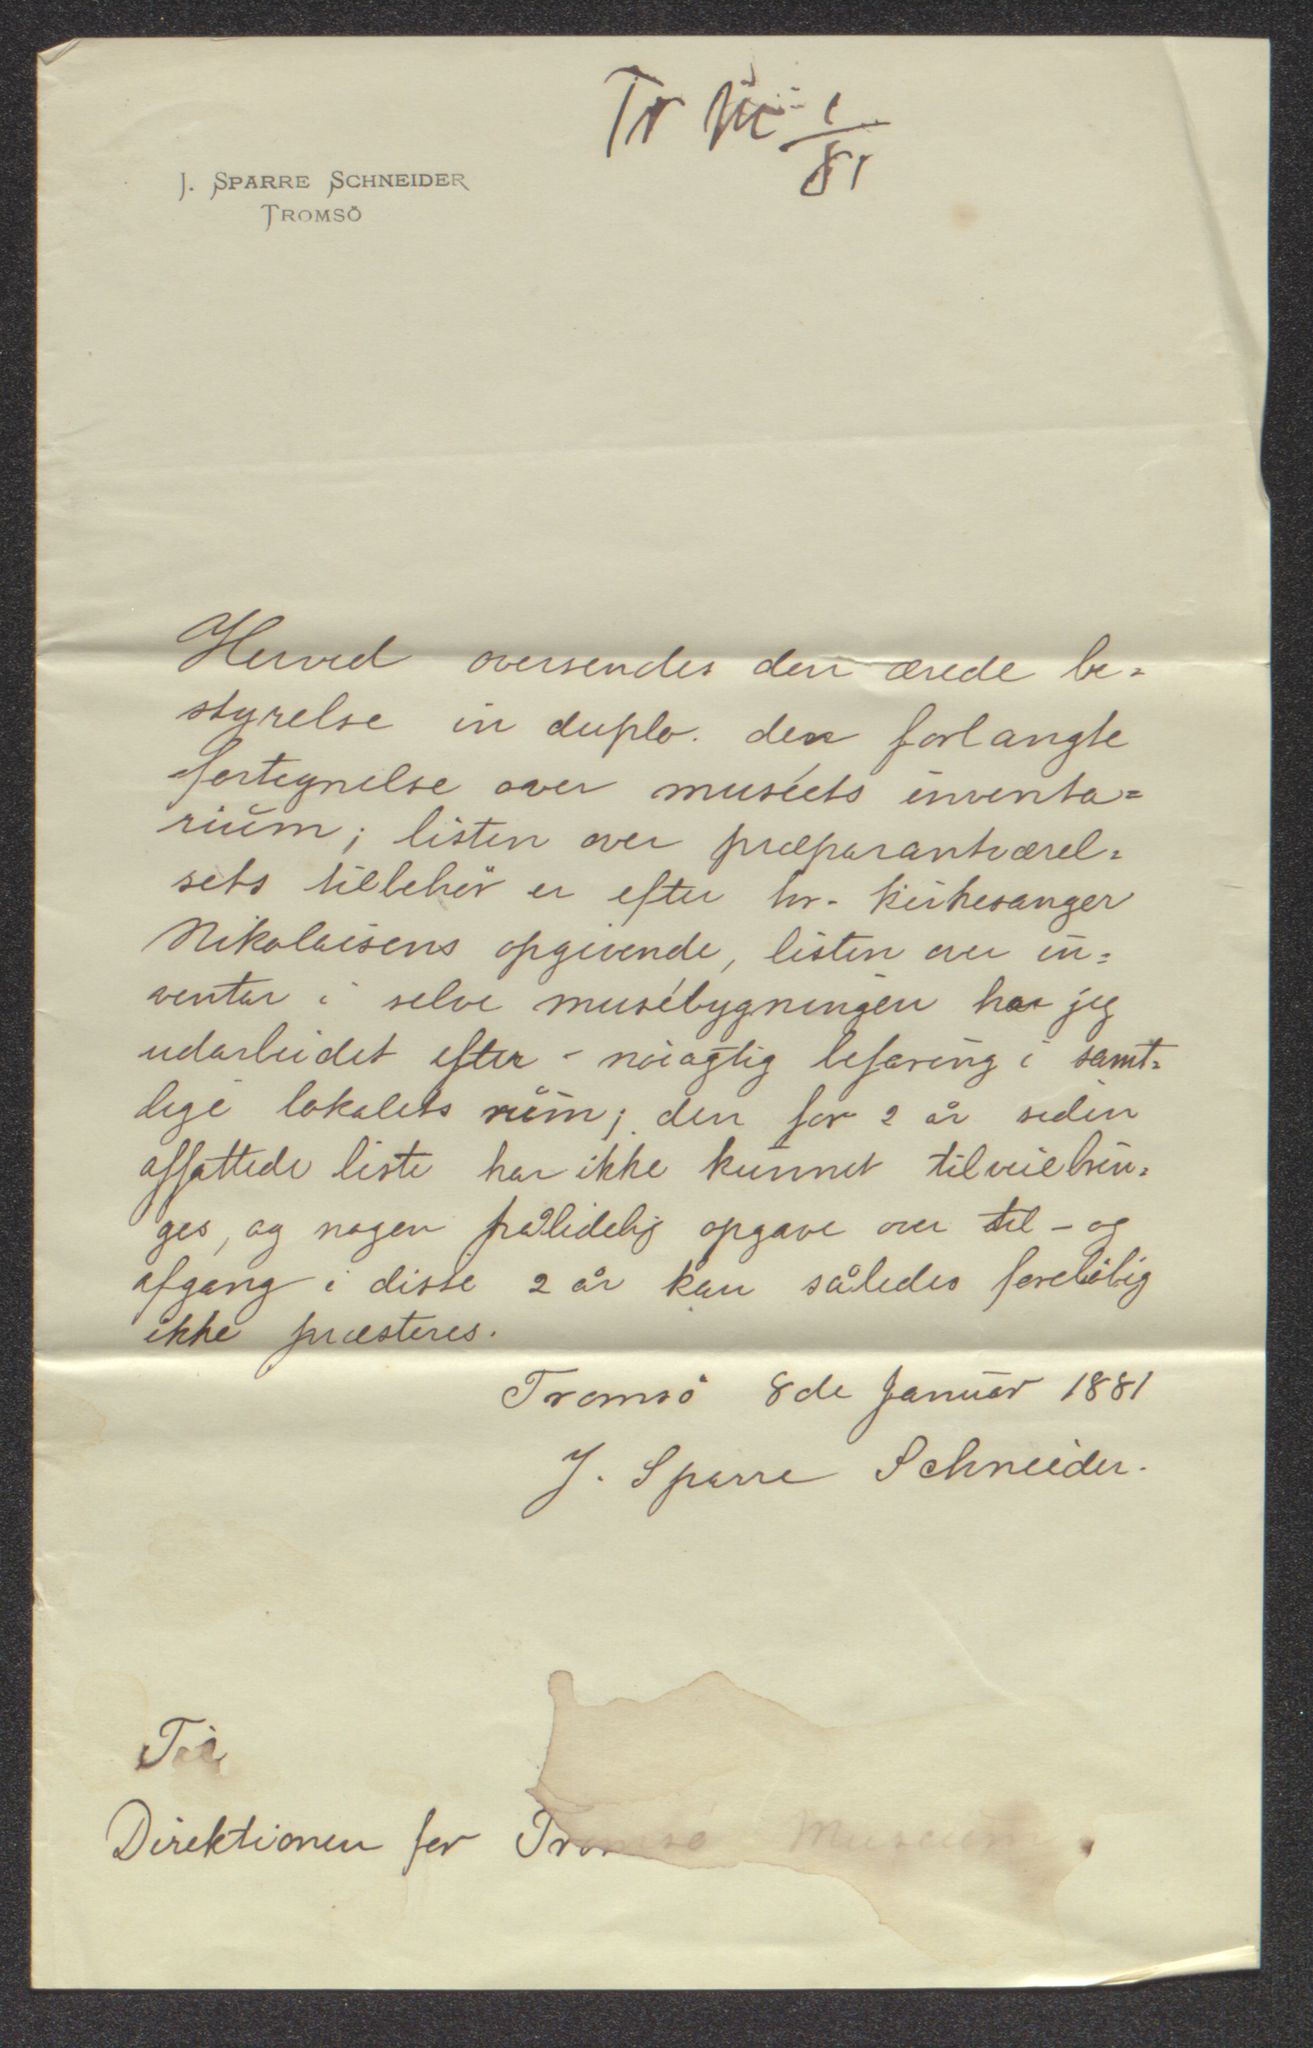 Tr M 1/81
J. SPARRE SCHNEIDER
TROMSÖ
Herved oversendes den ærede be=
styrelse in duplo. den forlangte
fortegnelse over muséets inventa=
rium; listen over præparantværel=
sets tilbehör er efter hr. kirkesanger
Nikolaisens opgivende, listen over in=
ventar i selve musébygningen har jeg
udarbeidet efter nöiagtig befaring i samt=
lige lokalets rum; den for 2 år siden
affattede liste har ikke kunnet tilveiebrin=
ges, og nogen pålidelig opgave over til- og
afgang i disse 2 år kan således forelöbig
ikke præsteres.
Tromsö 8de Januar 1881
J. Sparre Schneider.
Til
Direktionen for Tromsö Museum.